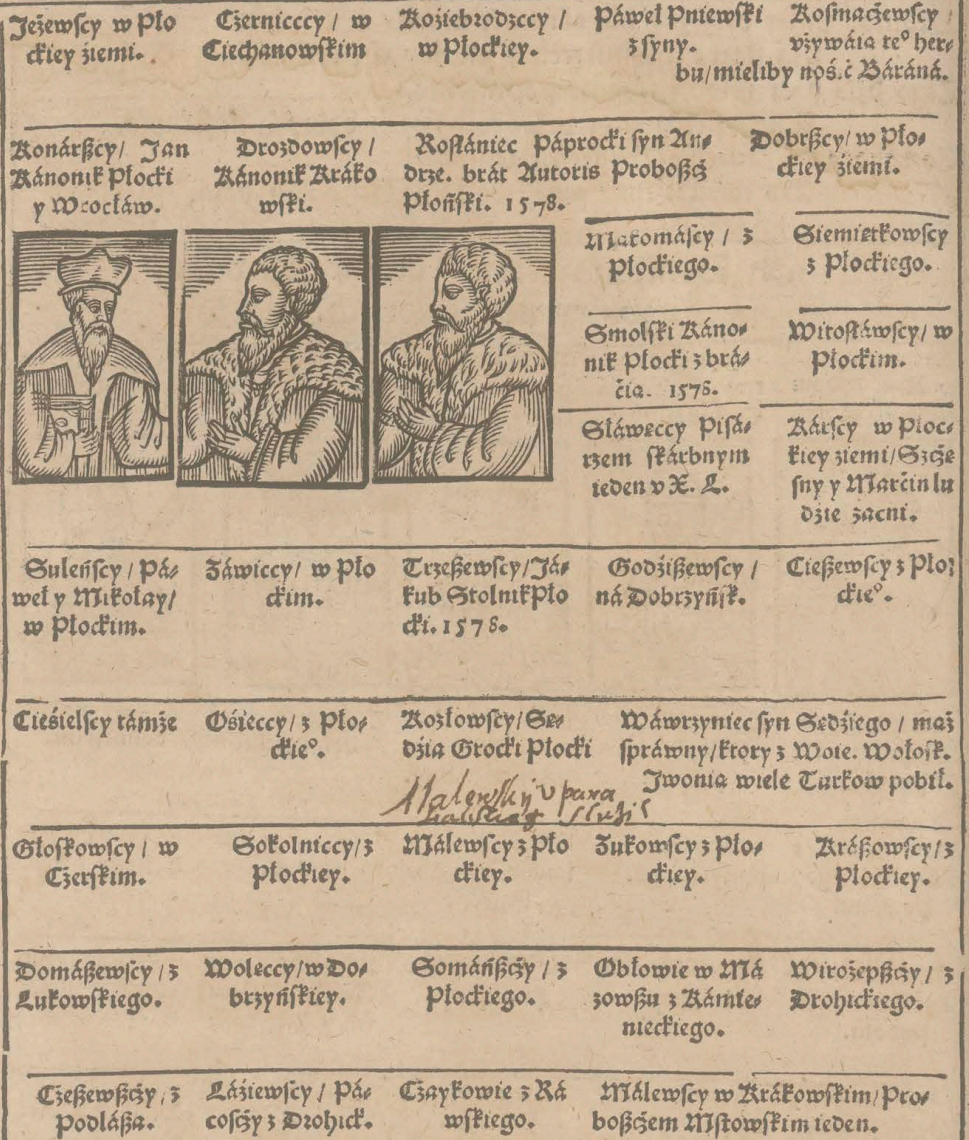 Jeżewscy w Pło
ckiey ziemi.
Czerniccy / w
Ciechanowſkim
Koźiebrodzccy /
w Płockiey.
Páweł Pniewſki
z ſyny.
Koſmaczewſcy
vżywáią te° her⸗
bu/mieliby noś.ć Báráná.
Konárßcy/ Jan
Kánonik Płocki
y Wrocłáw.
Drozdowſcy /
Kánonik Kráko
wſki.
Roſłániec Páprocki ſyn An⸗
drze. brát Autoris Proboßcz
Płońſki. 1578.
Dobrßcy/ w Pło⸗
ckiey źiemi.
Mákomáſcy / z
Płockiego.
Siemiętkowſcy
z Płockiego.
Smolſki Káno⸗
nik Płocki z brá⸗
ćia. 1578.
Witoſłáwſcy/ w
Płockim.
Sláweccy Piſá⸗
rzem ſkárbnym
ieden v X. L.
Kárſcy w Płoc⸗
kiey ziemi/Szcże
ſny y Marćin lu
dzie zacni.
Suleńſcy / Pá⸗
weł y Mikołay/
w Płockim.
Záwiccy/ w Pło
ckim.
Trzeßewſcy/Já⸗
kub Stolnik Pło
cki. 1578.
Godźißewſcy /
ná Dobrzyńſk.
Cießewſcy z Pło⸗
ckie°.
Cieśielſcy támże
Ośieccy/ z Pło⸗
ckie°.
Kozłowſcy/Sę⸗
dźia Grocki Płocki
Wáwrzyniec ſyn Sędźiego / mąż
ſpráwny/ktory z Woie. Wołoſk.
Jwonią wiele Turkow pobił.
Malewſkij v pana
ſłużił
Głoſkowſcy / w
Czerſkim.
Sokolniccy/z
Płockiey.
Málewſcy z Pło
ckiey.
Zukowſcy z Pło⸗
ckiey.
Kráßowſcy/z
Płockiey.
Domáßewſcy / z
Lukowſkiego.
Woleccy/w Do⸗
brzyńſkiey.
Somáńßczy / z
Płockiego.
Obłowie w Má
zowßu z Kámie⸗
nieckiego.
Wirożepßczy / z
Drohickiego.
Czeßewßczy, z
Podláßa.
Láźiewſcy / Pá⸗
coſczy z Drohick.
Czaykowie z Rá
wſkiego.
Málewſcy w Krákowſkim/Pro⸗
boßczem Mſtowſkim ieden.